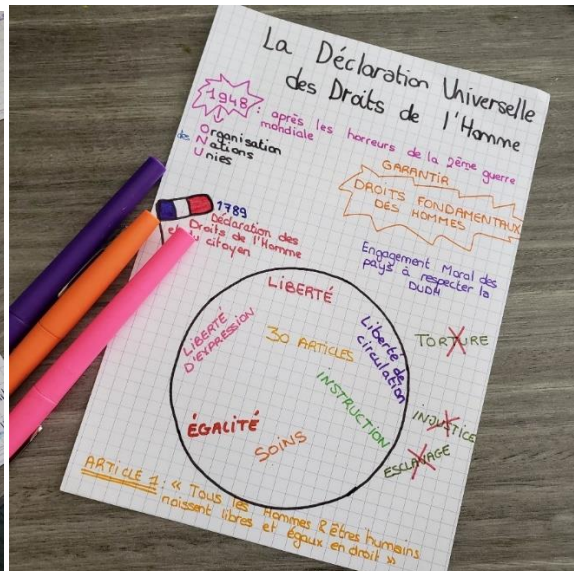 La Déclaration Universelle
des Droits de l'Homme
1948 : après les horreurs de la 2ème guerre
mondiale
des Organisation
Nations
Unies
GARANTIR
DROITS FONDAMENTAUX
DES HOMMES
1789
Déclaration des
Droits de l'Homme
et du citoyen
Engagement Moral des
pays à respecter la
DUDH
LIBERTÉ
LIBERTÉ
D'EXPRESSION
30 ARTICLES
Liberté de
circulation
INSTRUCTION
ÉGALITÉ
SOINS
TORTURE
INJUSTICE
ESCLAVAGE
ARTICLE 1 : « Tous les Hommes & êtres humains
naissent libres et égaux en droit »